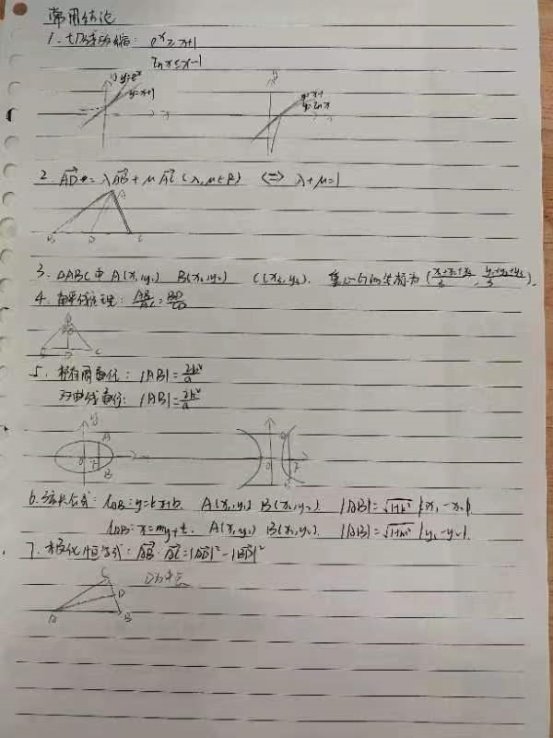 常用结论
1. 切线放缩: eˣ≥x+1
lnx≤x-1
y y=eˣ
y=x+1
x
y
y=x-1
y=lnx
2. AD = λAB + μAC (λ,μ∈R) ⟺ λ+μ=1
A
B D C
3. △ABC中 A(x₁,y₁) B(x₂,y₂) C(x₃,y₃).
4. 角平分线定理: AB/AC = BD/CD
5. 椭圆通径: |AB|=2b²/a
双曲线通径: |AB|=2b²/a
y
A
O F
B
6. 弦长公式: l_AB: y=kx+b. A(x₁,y₁) B(x₂,y₂) |AB|=√(1+k²) |x₁-x₂|
l_AB: x=my+t. A(x₁,y₁) B(x₂,y₂). |AB|=√(1+m²) |y₁-y₂|.
7. 极化恒等式: AB·AC=|AD|²-|BD|²
C D为中点
D
A B